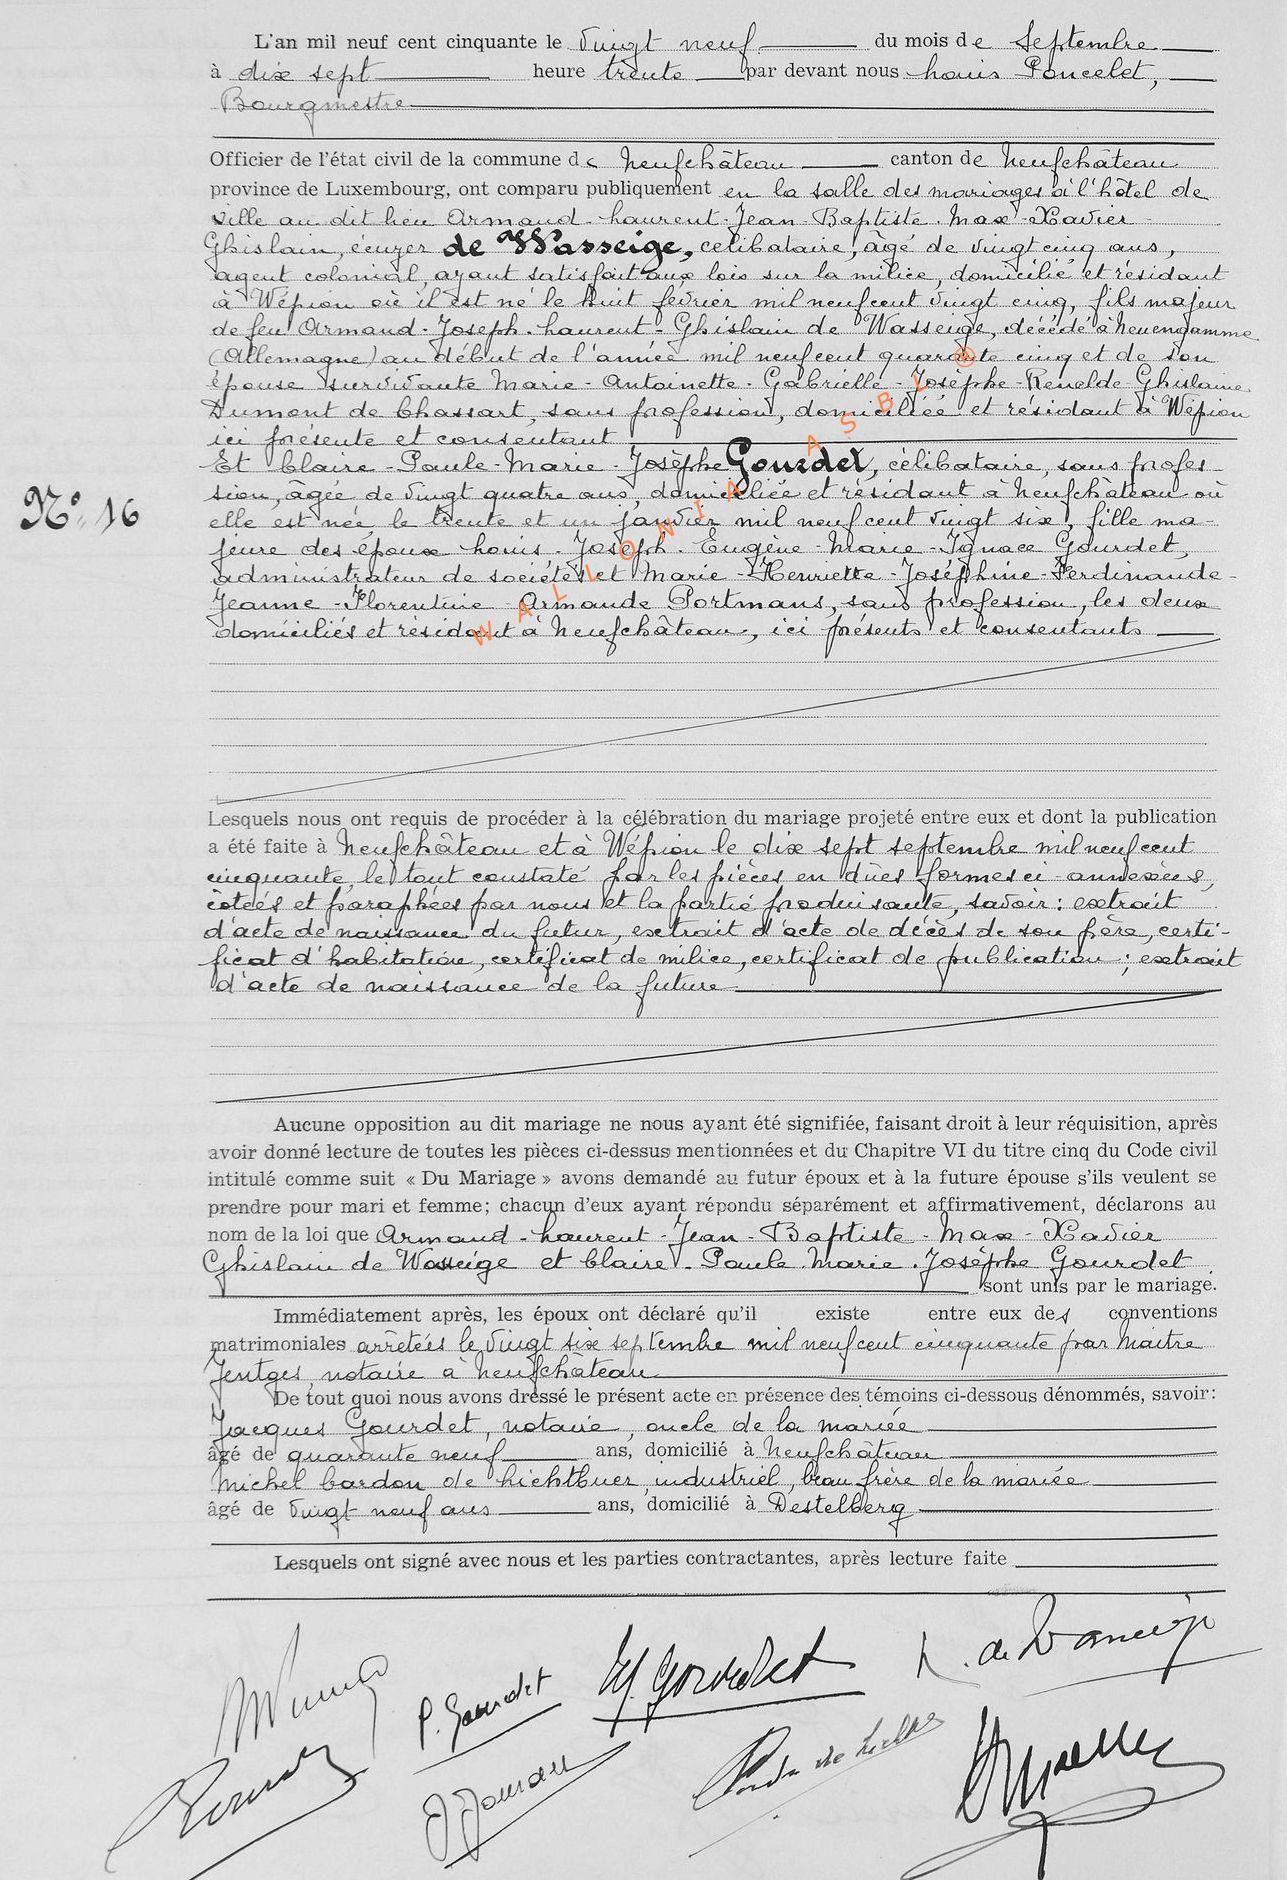 L'an mil neuf cent cinquante le vingt neuf du mois de Septembre
à dix sept heure trente par devant nous Louis Poncelet,
Bourgmestre
Officier de l'état civil de la commune de Neufchâteau canton de Neufchâteau
province de Luxembourg, ont comparu publiquement en la salle des mariages à l'hôtel de
ville au dit lieu Armand-Laurent-Jean-Baptiste-Max-Xavier
Ghislain, écuyer de Wasseige, célibataire, âgé de vingt cinq ans,
agent colonial, ayant satisfait aux lois sur la milice, domicilié et résidant
à Wépion où il est né le huit février mil neuf cent vingt cinq, fils majeur
de feu Armand-Joseph-Laurent-Ghislain de Wasseige, décédé à Neuengamme
(Allemagne) au début de l'année mil neuf cent quarante cinq et de son
épouse survivante Marie-Antoinette-Gabrielle-Josèphe-Renelde-Ghislaine
Dumont de Chassart, sans profession, domiciliée et résidant à Wépion
ici présente et consentant
Et Claire-Paule-Marie-Josèphe Gourdet, célibataire, sans profes-
N° 16
sion, âgée de vingt quatre ans, domiciliée et résidant à Neufchâteau où
elle est née le trente et un janvier mil neuf cent vingt six, fille ma-
jeure des époux Louis-Joseph-Eugène-Marie-Ignace Gourdet,
administrateur de sociétés et Marie-Henriette-Joséphine-Ferdinande-
Jeanne-Florentine Armande Portmans, sans profession, les deux
domiciliés et résidant à Neufchâteau, ici présents et consentants
WALLONIA ASBL ®
Lesquels nous ont requis de procéder à la célébration du mariage projeté entre eux et dont la publication
a été faite à Neufchâteau et à Wépion le dix sept septembre mil neuf cent
cinquante, le tout constaté par les pièces en dûes formes ci-annexées,
côtées et paraphées par nous et la partie produisante, savoir: extrait
d'acte de naissance du futur, extrait d'acte de décès de son père, certi-
ficat d'habitation, certificat de milice, certificat de publication; extrait
d'acte de naissance de la future
Aucune opposition au dit mariage ne nous ayant été signifiée, faisant droit à leur réquisition, après
avoir donné lecture de toutes les pièces ci-dessus mentionnées et du Chapitre VI du titre cinq du Code civil
intitulé comme suit « Du Mariage » avons demandé au futur époux et à la future épouse s'ils veulent se
prendre pour mari et femme; chacun d'eux ayant répondu séparément et affirmativement, déclarons au
nom de la loi que Armand-Laurent-Jean-Baptiste-Max-Xavier
Ghislain de Wasseige et Claire-Paule Marie-Josèphe Gourdet
sont unis par le mariage.
Immédiatement après, les époux ont déclaré qu'il existe entre eux des conventions
matrimoniales arrêtées le vingt six septembre mil neuf cent cinquante par Maitre
Jentges, notaire à Neufchâteau
De tout quoi nous avons dressé le présent acte en présence des témoins ci-dessous dénommés, savoir:
Jacques Gourdet, notaire, oncle de la mariée
âgé de quarante neuf ans, domicilié à Neufchâteau
Michel Cardon de Lichtbuer, industriel, beau frère de la mariée
âgé de vingt neuf ans ans, domicilié à Destelberg
Lesquels ont signé avec nous et les parties contractantes, après lecture faite
P. Gourdet
M. Gourdet